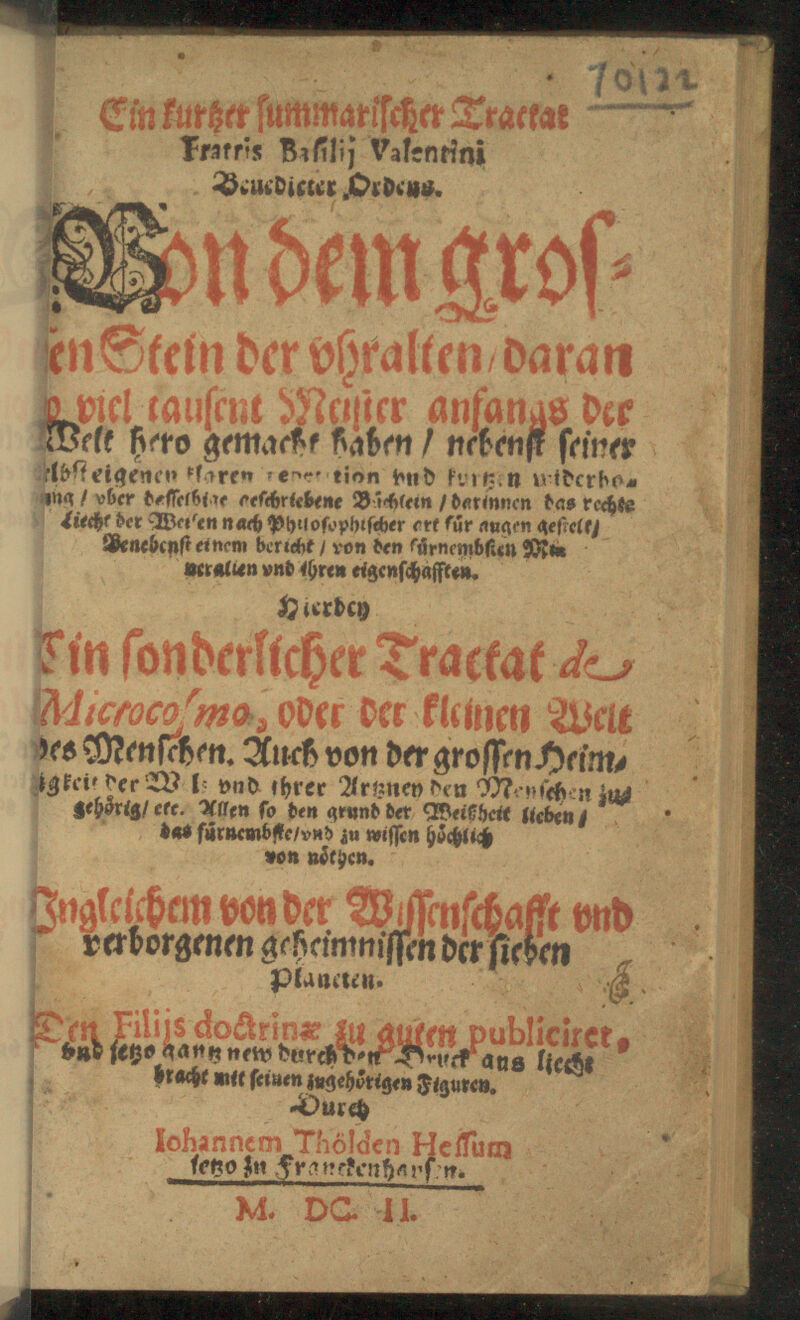 70122
Ein kurtzer summarischer Tractat
Fratris Basilij Valentini
Benedicter Ordens.
Von dem gros-
sen Stein der vhralten / daran
so viel tausent Meister anfangs der
Welt hero gemacht haben / nebenst seiner
selbst eigenen klaren repetition vnd kurtzen widerho-
lung / vber desselbige geschriebene Büchlein / darinnen das rechte
Liecht der Weisen nach Philosophischer art für augen gestelt /
Benebenst einem bericht / von den fürnembsten Mi-
neralien vnd ihren eigenschafften.
Hierbey
Ein sonderlicher Tractat de
Microcosmo, oder der kleinen Welt
des Menschen. Auch von der grossen Heim-
igkeit der Welt vnd ihrer Artzney den Menschen zu-
gehörig / etc. Allen so den grund der Weißheit lieben /
das fürnembste / vnd zu wissen höchlich
von nöthen.
Ingleichem von der Wissenschafft vnd
verborgenen geheimnissen der sieben
Planeten.
Den Filijs doctrinæ zu guten publiciret,
vnd jetzo gantz new durch den Druck ans liecht
bracht mit seinen zugehörigen Figuren.
Durch
Iohannem Thölden Hessum
jetzo zu Franckenhausen.
M. DC. II.